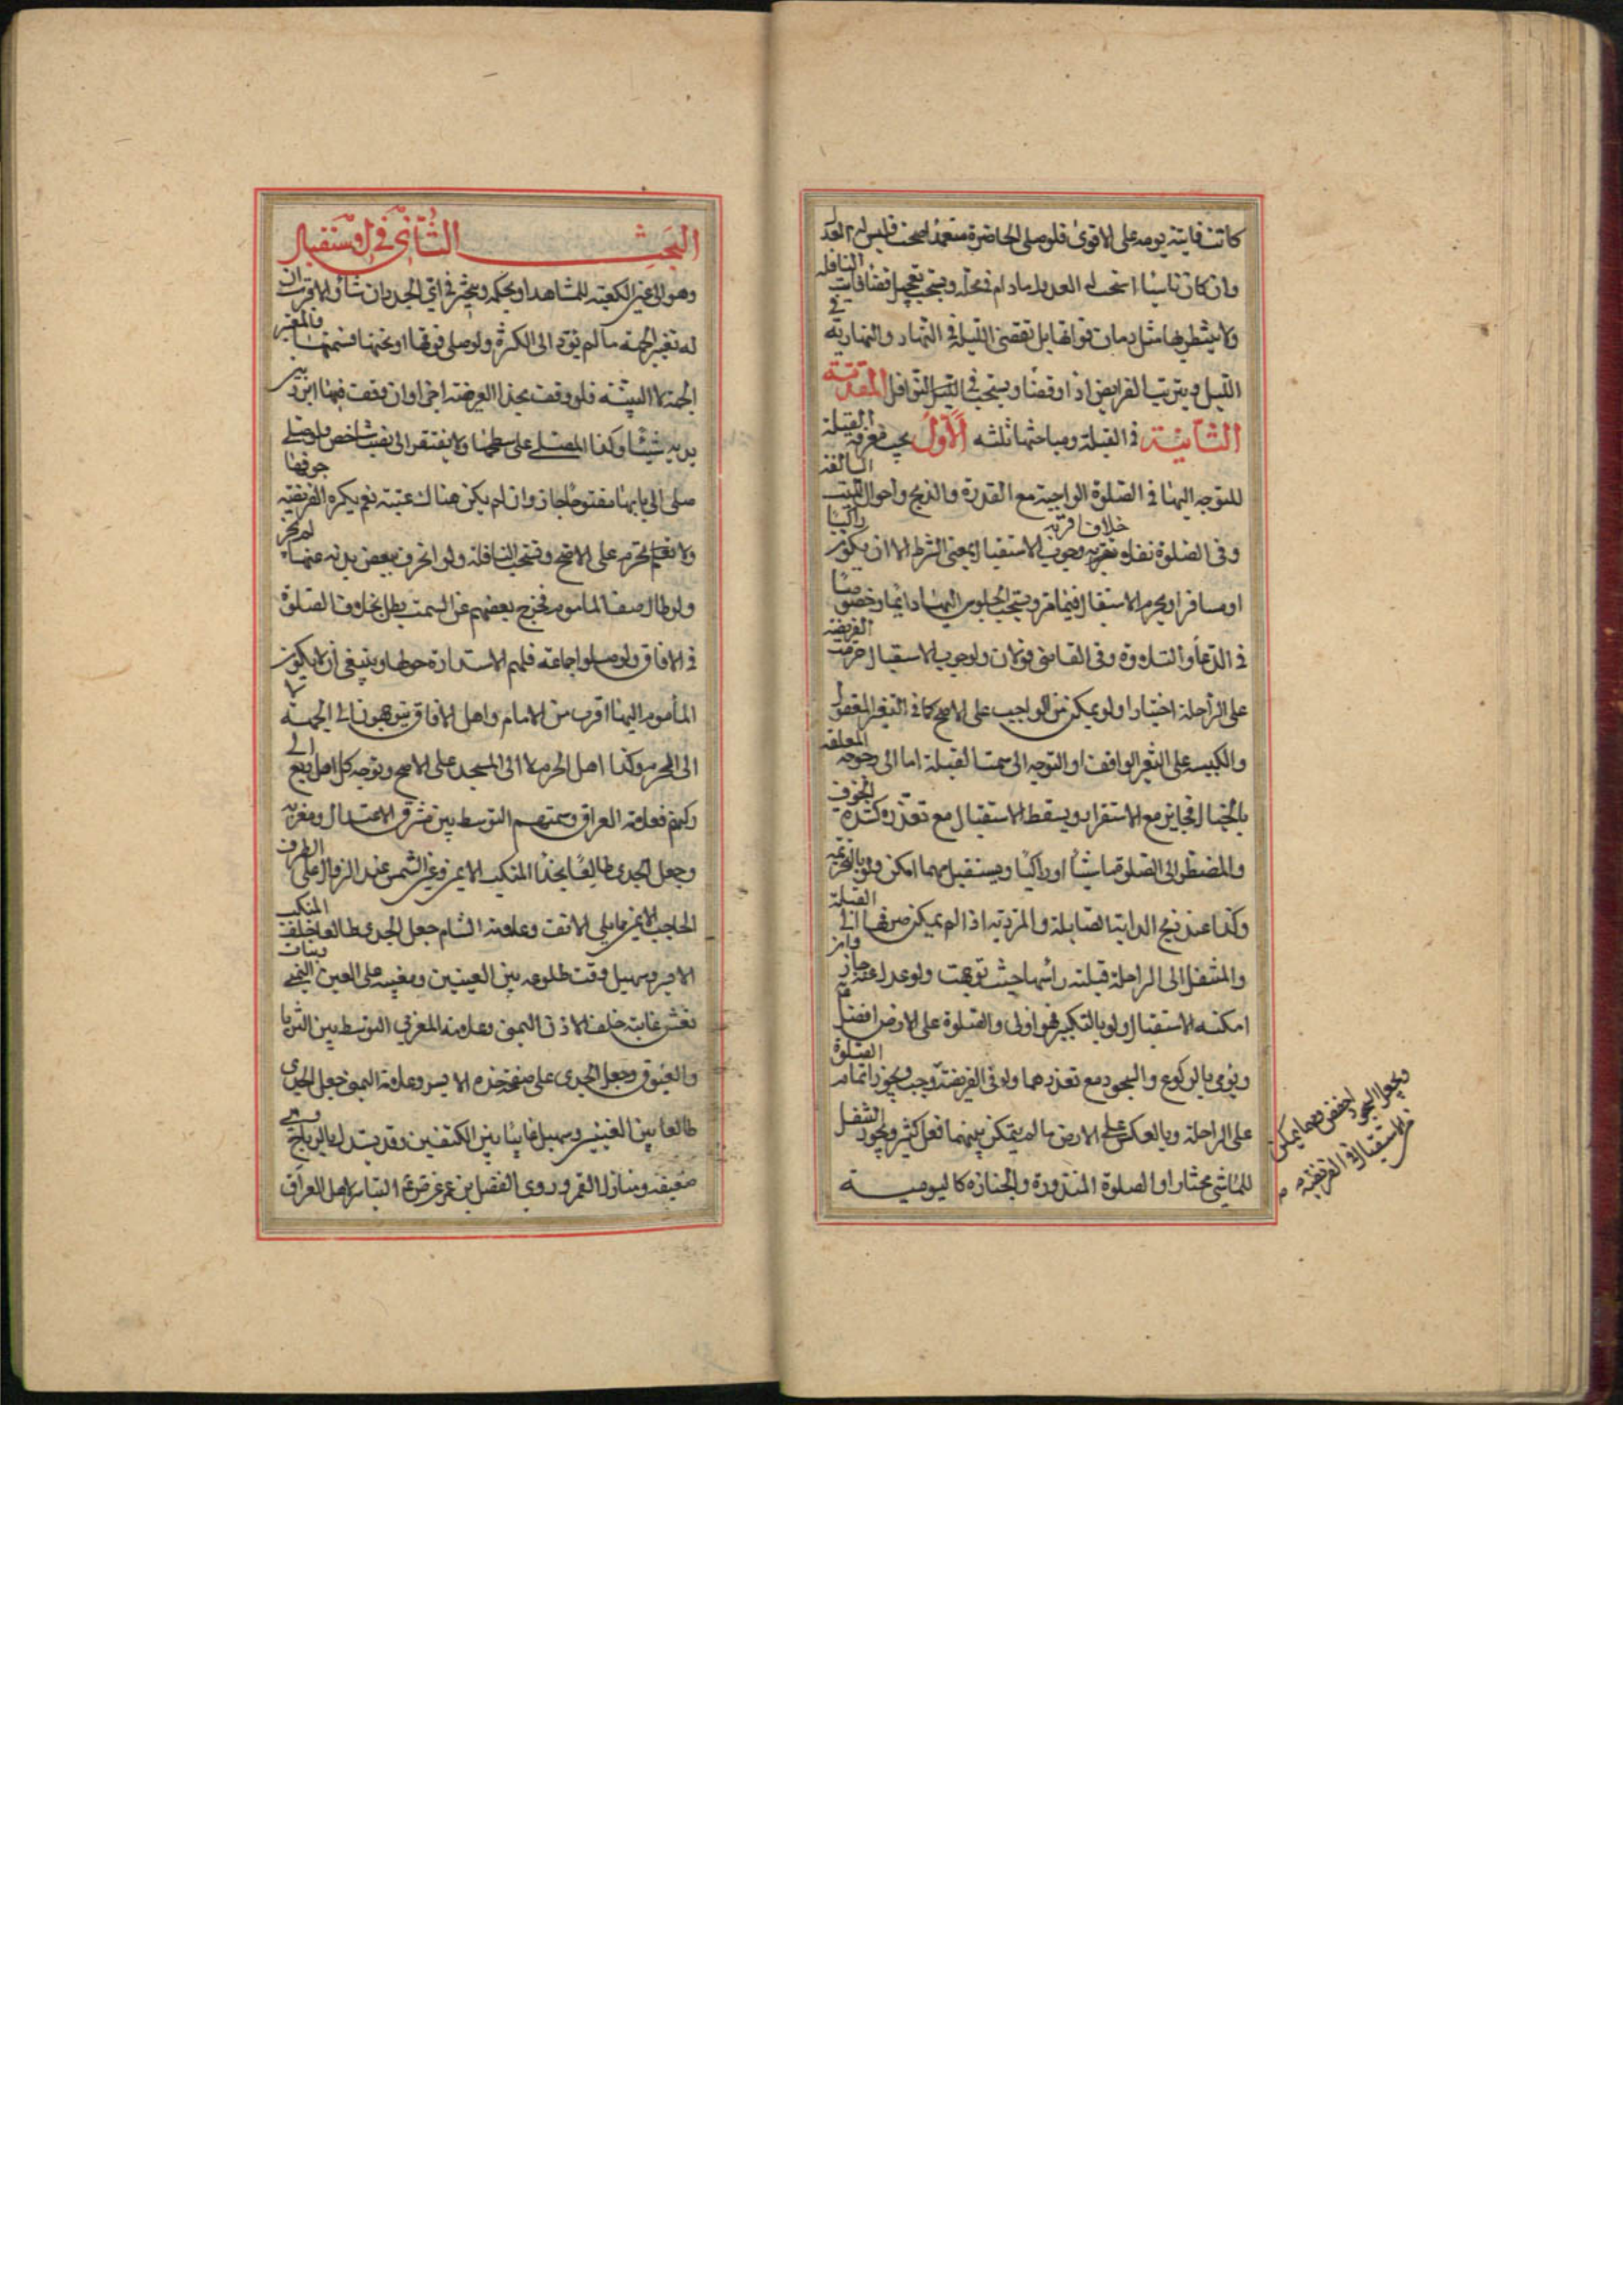 كانت فايتة يومه على الاقوى فلو صلى الحاضرة متعمدا صحت فليس له العد
وان كان ناسيا استحب له العدول مادام في محله ويستحب تعجيل قضا فايت النافلة
ولا ينتظر بها مثل زمان فواتها بل تقضى الليلية في النهار والنهارية في
الليل ويترتب الفرايض اذا وقضا ويستحب ترتيب النوافل المقدمة
الثانية في القبلة ومباحثها ثلثه الاول يجب معرفة القبلة
للتوجه اليها في الصلوة الواجبة مع القدرة والذبح واحوال الميت السالفة
وفي الصلوة نفلا خلاف اقربه وجوب الاستقبال بمعنى الشرط الا ان يكون راكبا
او مسافرا ويحرم الاستقبال فيما مر ويستحب الجلوس اليها دايما وخصوصا
في الدعا والتلاوة وفي القاضي قولان ولوجوب الاستقبال حرمت الفريضة
على الراحلة اختيارا ولو تمكن من الواجب على الاصح كما في البعير المعقول
والكبيسة على النهر الواقف او التوجه الى سمت القبلة اما الارجوحة المعلقة
بالحبال فجايز مع الاستقرار ويسقط الاستقبال مع تعذره كشدة الخوف
والمضطر الى الصلوة ماشيا او راكبا ويستقبل مهما امكن ولو بالتحريمة
وكذا عند ذبح الدابة الصايلة والمتردية اذا لم يمكن صرفها الى القبلة
والمتنفل الى الراحلة قبلته راسها حيث توجهت ولو عدل عنه جاز وان
امكنه الاستقبال ولو بالتكبير فهو اولى والصلوة على الارض افضل
ويومي بالركوع والسجود مع تعذرهما ولو في الفريضة وجب ويجوز اتمام الصلوة
على الراحلة وبالعكس على الارض ما لم يتمكن بينهما فعل كثير ويجوز التنفل
للماشي مختارا والصلوة المنذورة والجنازة كاليومية
ويجعل السجود اخفض ومهما يمكن
من الاستقبال في الفريضة
البحث الثاني في الاستقبال
وهو الى عين الكعبة للمشاهد او بحكمه ويتخير في اي الجدران شا والاقرب ان
له تغيير الجهة ما لم يؤد الى الكثرة ولو صلى فوقها او تحتها فسمتها فالمعتبر
الجهة لا البنية فلو وقف بحذا العرضة اجزا وان وقف فيها ابرز بين
يديه شيئا وكذا المصلي على سطحها ولا يفتقر الى نصب شاخص ولو صلى
صلى الى بابها مفتوحا جاز وان لم يكن هناك عتبة نعم يكره الفريضة جوفها
ولا تحرم على الاصح وتستحب النافلة ولو انحرف بعض بدنه عنها لم يجز
ولو طال صف المأموم فخرج بعضهم عن السمت بطل بخلاف الصلوة
في الافاق ولو صلوا جماعة فلهم الاستدارة حولها وينبغي ان لا يكون
المأموم اليها اقرب من الامام واهل الافاق يتوجهون الى الجهة لا
الى الحرم وكذا اهل الحرم لا الى المسجد على الاصح ويتوجه كل اهل ربع الى
ركنهم فعلامة العراق وسمتهم التوسط بين مشرق الاعتدال ومغربه
وجعل الجدي طالعا بحذا المنكب الايمن وعين الشمس عند الزوال على الطرف
الحاجب الايمن مما يلي الانف وعلامة الشام جعل الجدي طالعا خلف المنكب
الايسر وسهيل وقت طلوعه بين العينين ومغيبه على العين اليمنى وبنات
نعش غايبة خلف الاذن اليمنى وعلامة المغرب التوسط بين الثريا
والعيوق وجعل الجدي على صفحة خده الايسر وعلامة اليمن جعل الجدي
طالعا بين العينين وسهيل غايبا بين الكتفين وقد يستدل بالرياح وهي
ضعيفة ومنازل القمر وروى الفضل بن عمر عرض التياسر لاهل العراق